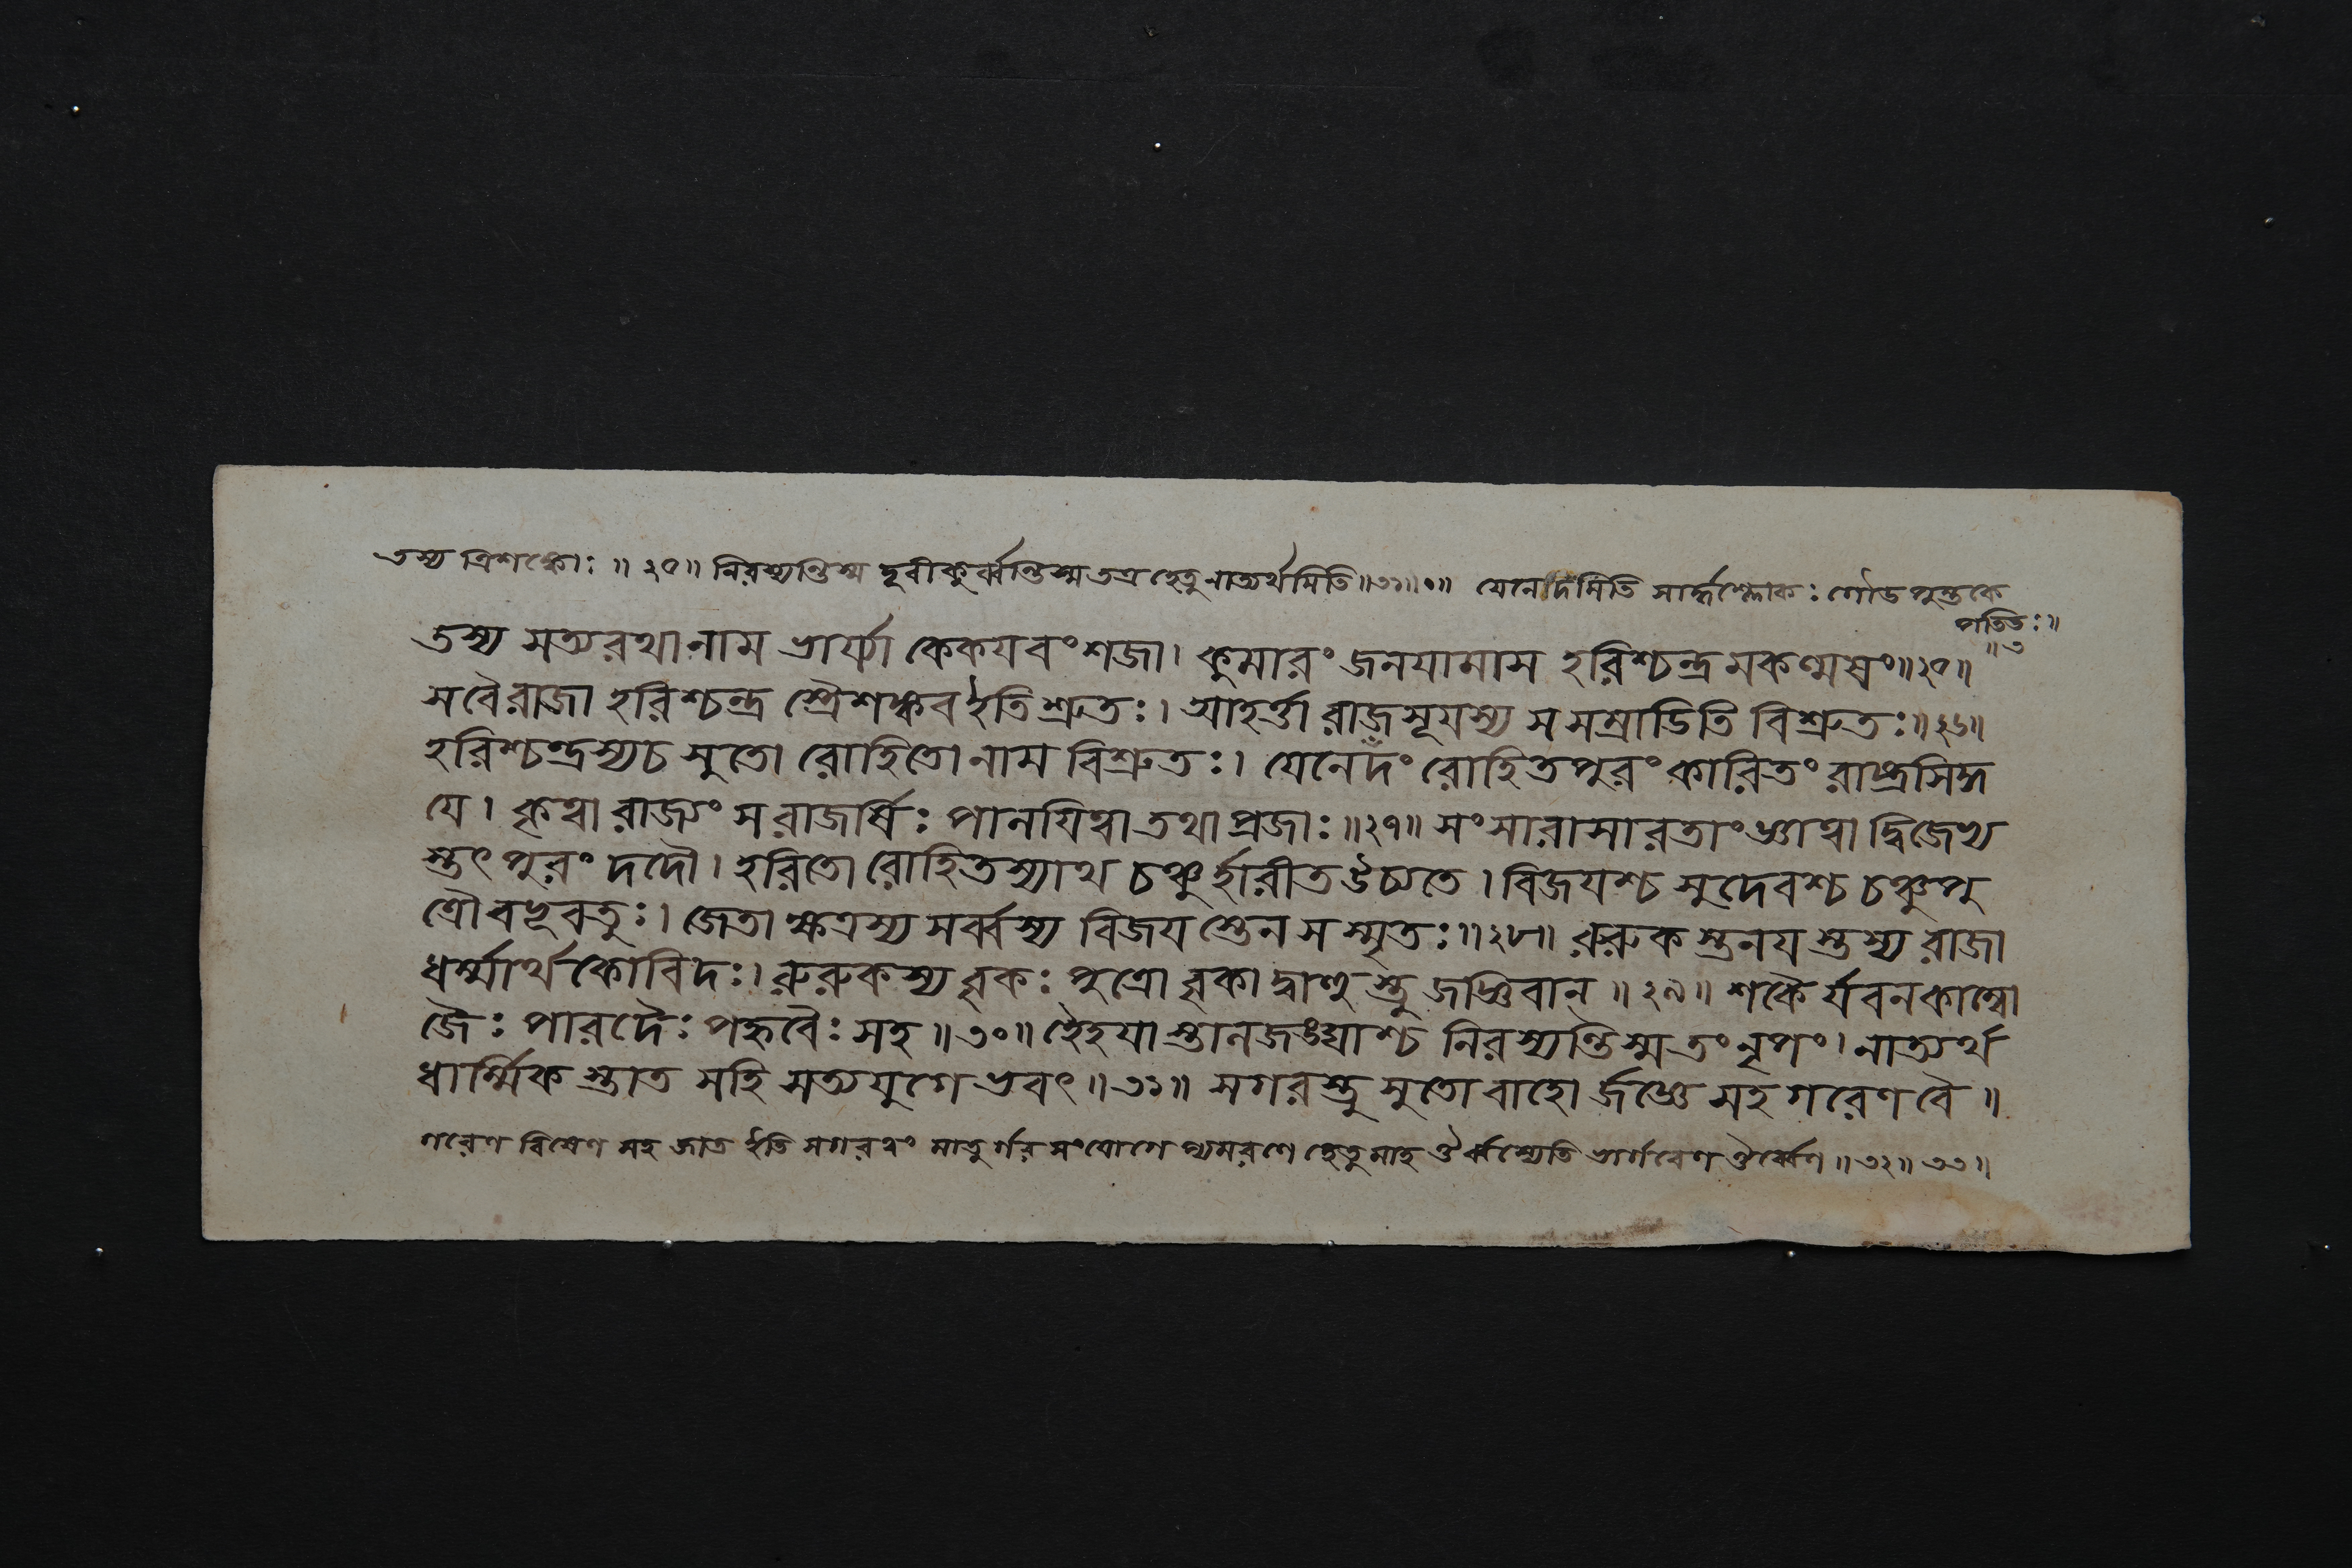 তস্য ত্রিশঙ্কোঃ ॥ ২৫॥ নিরস্যন্তিস্ম দূরীকুর্ব্বন্তিস্ম তত্র হেতু নাত্যর্থমিতি ॥৩১॥ ॰ ॥ যেনেদমিতি সার্দ্ধশ্লোকঃ গৌড পুস্তকে
পতিতঃ ॥
॥৩
তস্য সত্যরথানাম ভার্য্যা কেকযবংশজা। কুমারং জনযামাস হরিশ্চন্দ্রমকল্মষং॥২৫॥
সবৈরাজা হরিশ্চন্দ্র স্ত্রৈশঙ্কব ইতি শ্রুতঃ। আহর্ত্তা রাজসূযস্য স সম্রাডিতি বিশ্রুতঃ॥২৬॥
হরিশ্চন্দ্রস্যচ সুতো রোহিতোনাম বিশ্রুতঃ। যেনেদং রোহিতপুরং কারিতং রাজ্যসিদ্ধ
যে। কৃত্বা রাজ্যং স রাজর্ষিঃ পালযিত্বা তথা প্রজাঃ॥২৭॥ সংসারাসারতাং জ্ঞাত্বা দ্বিজেভ্য
স্তৎ পুরং দদৌ। হরিতো রোহিতস্যাথ চঞ্চুর্হারীত উচ্যতে। বিজযশ্চ সুদেবশ্চ চঞ্চুপু
ত্রৌ বভূবতুঃ। জেতা ক্ষত্রস্য সর্ব্বস্য বিজয স্তেন সস্মৃতঃ॥২৮॥ রুরুক স্তনয স্তস্য রাজা
ধর্ম্মার্থকোবিদঃ। রুরুকস্য বৃকঃ পুত্রো বৃকা দ্বাহু স্তু জজ্ঞিবান্ ॥২৯॥ শকৈ র্যবনকাম্বো
জৈঃ পারদৈঃ পহ্নবৈঃ সহ ॥৩০॥ হৈহযা স্তালজঙ্ঘাশ্চ নিরস্যন্তিস্ম তং নৃপং। নাত্যর্থ
ধার্ম্মিক স্তাত সহি সত্যযুগে ভবৎ ॥৩১॥ সগরস্তু সুতো বাহো র্জজ্ঞে সহ গরেণ বৈ ॥
গরেণ বিষেণ সহ জাত ইতি সগরত্বং মাতু র্গর সংযোগে প্যমরণে হেতু মাহ ঔর্ব্বস্যেতি ভার্গবেণ ঔর্ব্বেণ ॥৩২॥ ৩৩॥